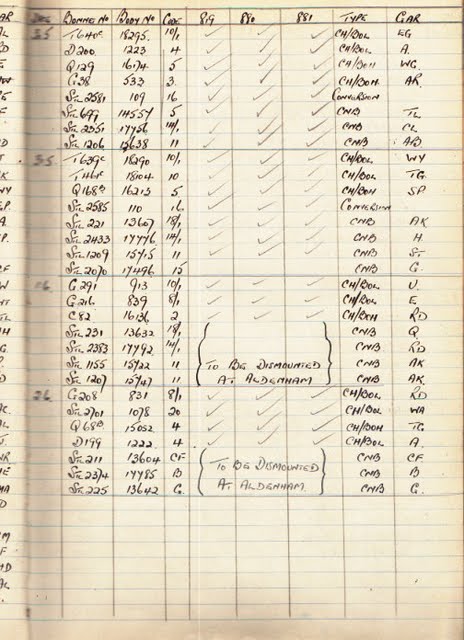 DEC BONNET NO BODY NO CODE 819 880 881 TYPE GAR
35 18295 10/1 CH/BOL EG
D200 1223 4 CH/BOL A.
Q129 16174 5 CH/BOH WG.
G38 533 3. CH/BOH AR.
STL 2581 109 16 CONVERSION
STL 699 14557 5 CNB TL
STL 2351 17756 14/1 CNB CL
STL 1206 15638 11 CNB AD
35 T639C 18290 10/1 CH/BOL WY
18104 10 CH/BOL TG
Q168 16213 5 CH/BOH SP.
STL 2585 110 16. CONVERSION
STL 221 13607 18/1 CNB AK
STL 2433 17776 14/1 CNB H.
STL 1209 15715 11 CNB ST
STL 2070 17496 15 CNB G.
G291 913 10/1 CH/BOL U.
G216 839 8/1 CH/BOL E.
C82 16136 2 CH/BOH RD
STL 231 13632 18/1 CNB Q.
STL 2383 17792 14/1 CNB RD
STL 1155 15722 11 TO BE DISMOUNTED CNB AK
STL 1207 15747 11 AT ALDENHAM CNB AK.
26 G208 831 8/1 CH/BOL RD
STL 2701 1078 20 CH/BOL WA
Q68 15052 4 CH/BOH TG
D199 1222 4 CH/BOL A.
STL 211 13604 CF TO BE DISMOUNTED CNB CF
STL 2374 17785 B AT ALDENHAM. CNB B
STL 225 13642 G. CNB G.